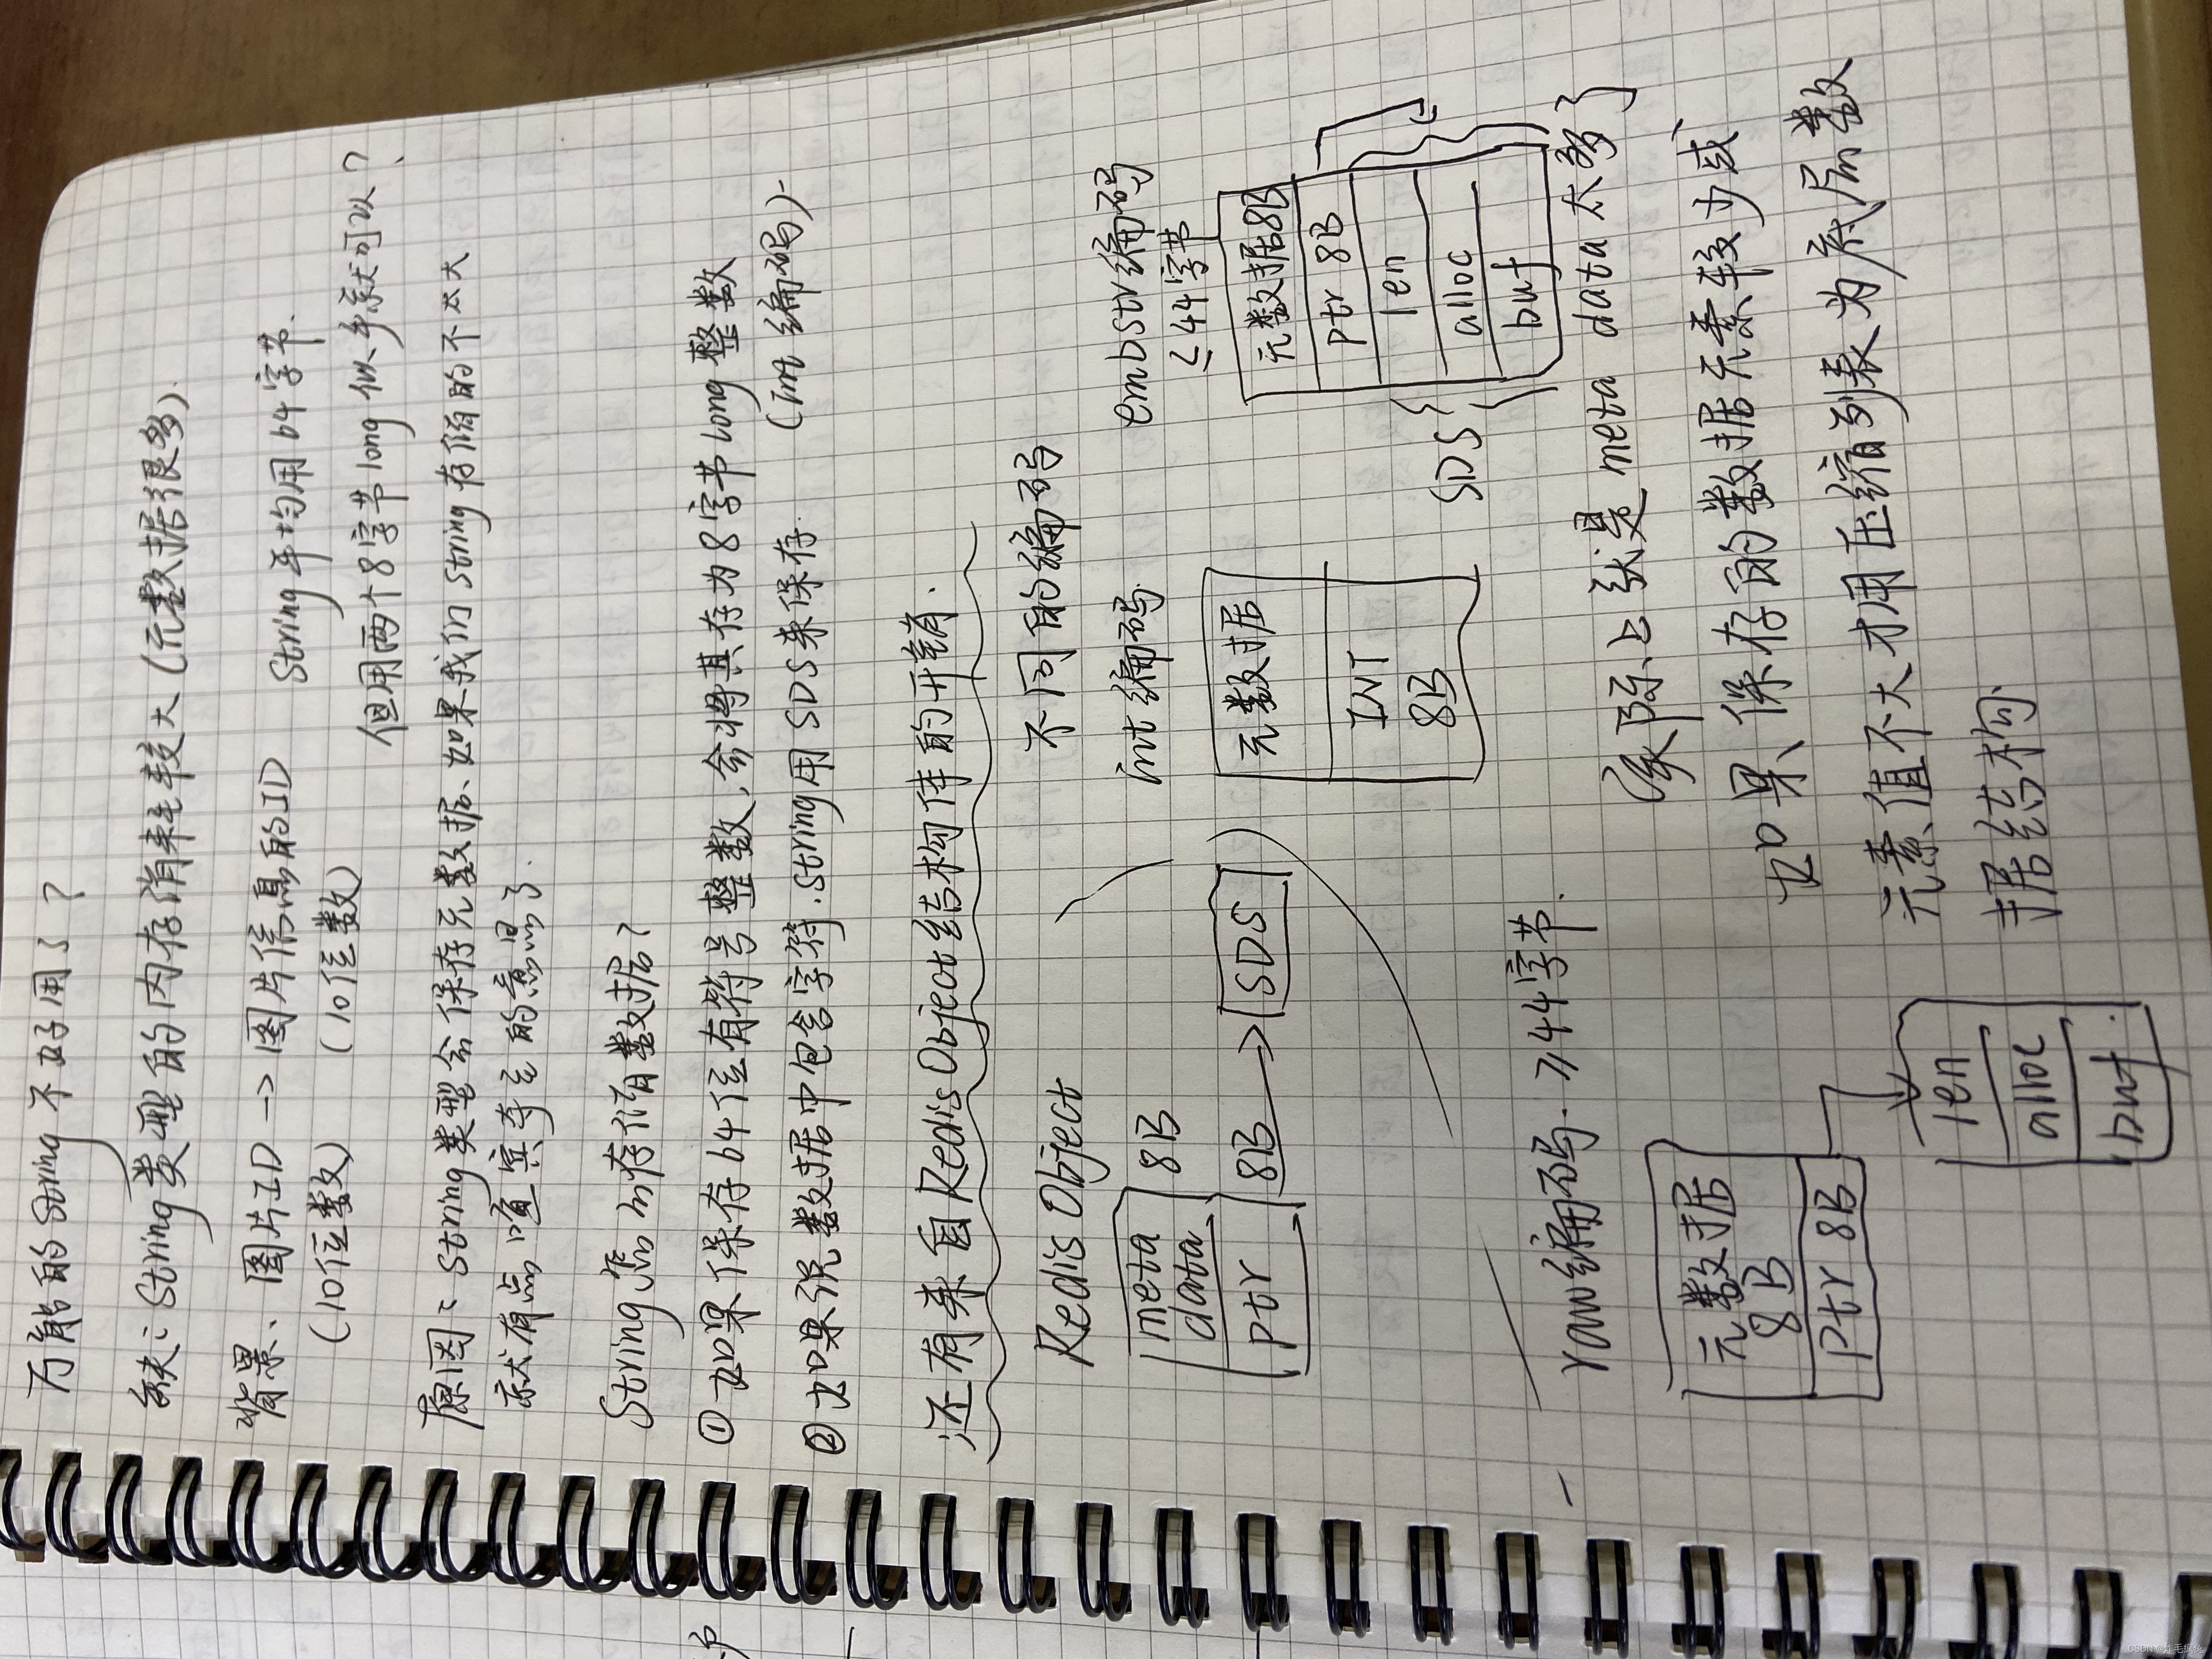 万能的String不好用了？
缺：String类型的内存消耗较大（元数据很多）.
背景、图片ID -> 图片信息的ID String平均用64字节.
（10位数） （10位数） 但用两个8字节long似乎就可以？
原因：String类型会保存元数据、如果我们String存储的不太大
就有点喧宾夺主的意思了.
String怎么存储数据？
① 如果保存64位有符号整数，会将其存为8字节Long整数
（int编码）
② 如果说数据中包含字符.String用SDS来保存.
还有来自RedisObject结构体的开销.
Redis Object
meta data 8B
ptr 8B -> SDS
不同的编码
int编码
元数据
INT
8B
embstr编码
≤44字节
元数据8B
ptr 8B
len
alloc
buf
SDS
raw编码. ≥44字节.
元数据
8B
Ptr 8B
len
alloc
buf.
实际上就是meta data太多了
如果、保存的数据元素较少或、
元素值不大才用压缩列表为底层数
据结构
CSDN